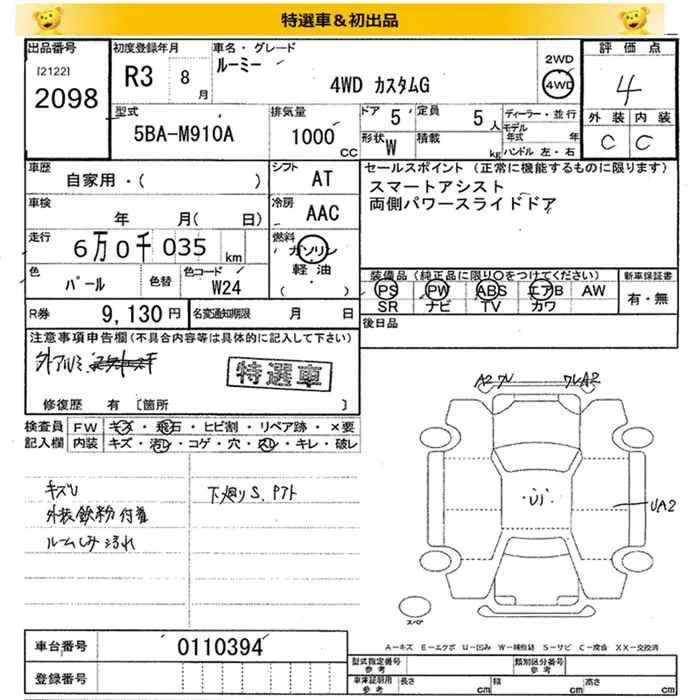 特選車&初出品
出品番号
[2122]
2098
初度登録年月
R3 8月
車名・グレード
ルーミー
4WD カスタムG
2WD
4WD
評価点
4
外装 内装
C C
型式
5BA-M910A
排気量
1000 CC
ドア 5
定員 5人
形状 W
積載 kg
ディーラー・並行
モデル年式 年
ハンドル 左・右
車歴
自家用・( )
シフト
AT
車検
年 月( 日)
冷房
AAC
走行
6万0千035 km
燃料
ガソリン
軽油
( ・ )
色
パール
色替
色コード
W24
R券 9,130円
名変通知期限 月 日
セールスポイント (正常に機能するものに限ります)
スマートアシスト
両側パワースライドドア
装備品(純正品に限り○をつけてください)
PS PW ABS エアB AW
SR ナビ TV カワ
新車保証書
有・無
後日品
注意事項申告欄(不具合内容等は具体的に記入して下さい)
外アルミ
特選車
修復歴 有 [箇所 ]
検査員記入欄
FW キズ・飛石・ヒビ割・リペア跡・×要
内装 キズ・汚レ・コゲ・穴・スレ・キレ・破レ
キズU
外装鉄粉付着
ルームしみ汚れ
下廻りS.Pアト
A2 ワレ ワレA2
UA2
スペア
A-キズ E-エクボ U-凹み W-補修跡 S-サビ C-腐食 XX-交換済
車台番号 0110394
登録番号
型式指定番号 参考
類別区分番号 参考
車庫証明用 参考
長さ cm 幅 cm 高さ cm